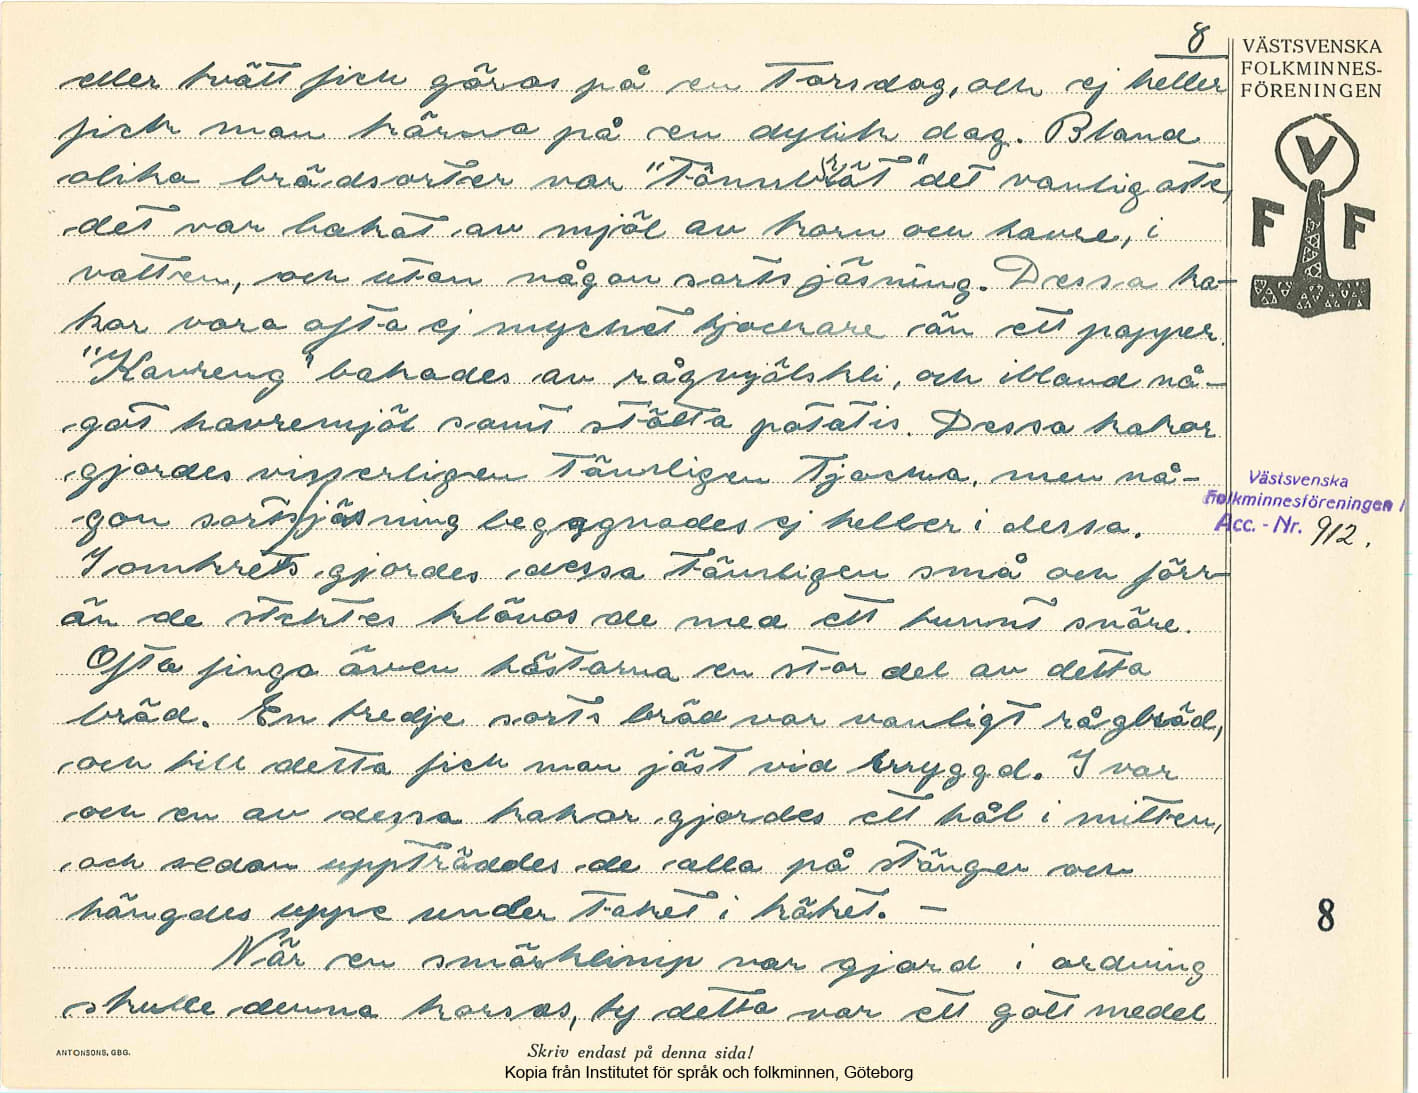 8
VÄSTSVENSKA
FOLKMINNES-
FÖRENINGEN
V
F F
eller tvätt fick göras på en Torsdag, och ej heller
fick man kärna på en dylik dag. Bland
olika brödsorter var "Tunnbröt" det vanligaste,
det var bakat av mjöl av korn och havre, i
vatten, och utan någon sorts jäsning. Dessa ka-
kor voro ofta ej mycket tjockare än ett papper.
"Kavreng" bakades av rågmjölskli, och ibland nå-
got havremjöl samt stötta potatis. Dessa kakor
gjordes visserligen Tämligen Tjocka, men nå-
gon sorts jäsning begagnades ej heller i dessa.
I omkrets gjordes dessa Tämligen små och förr-
än de stektes klövos de med ett tunnt snöre.
Ofta finga även hästarna en stor del av detta
bröd. En tredje sorts bröd var vanligt rågbröd,
och till detta fick man jäst vid bryggd. I var
och en av dessa kakor gjordes ett hål i mitten,
och sedan uppträddes de alla på stänger och
hängdes uppe under Taket i köket. –
När en smörklimp var gjord i ordning
skulle denna korsas, ty detta var ett gott medel
Västsvenska
Folkminnesföreningen
Acc. - Nr. 912.
8
ANTONSONS, GBG.
Skriv endast på denna sida!
Kopia från Institutet för språk och folkminnen, Göteborg